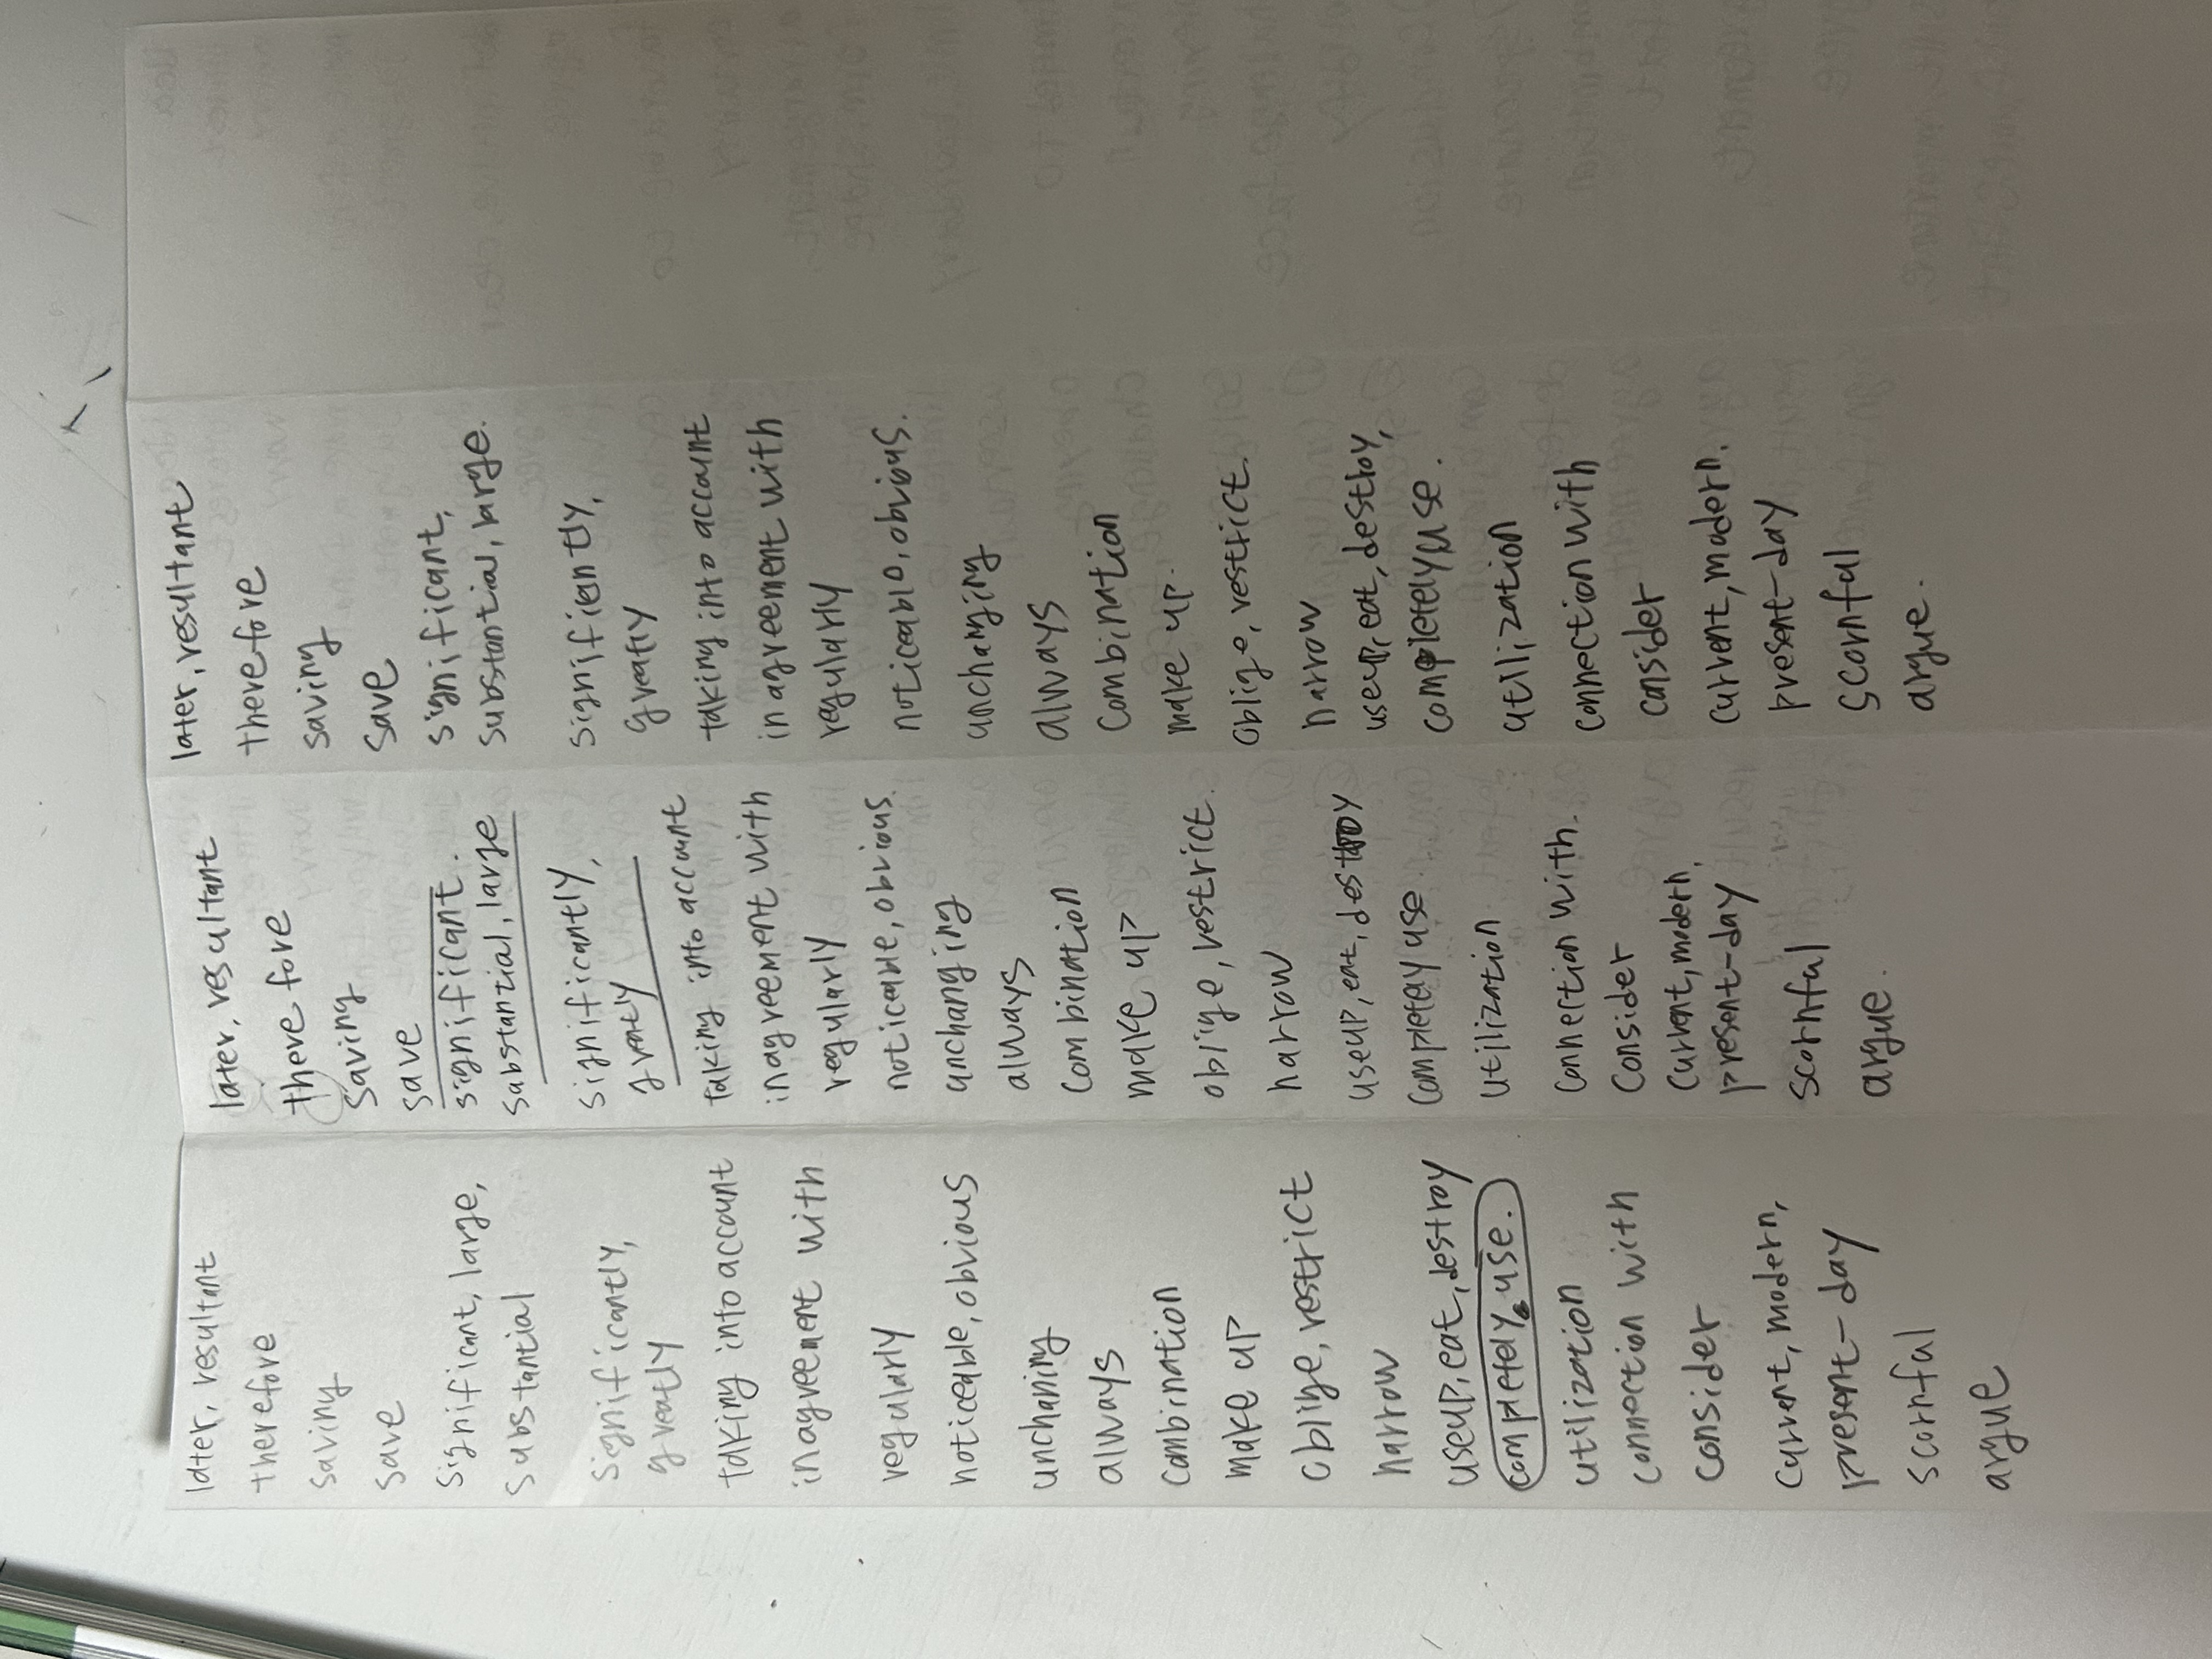 later, resultant
therefore
saving
save
significant, large,
substantial
significantly,
greatly
taking into account
inagreement with
regularly
noticeable, obvious
unchaning
always
combination
make up
oblige, restrict
narrow
useup, eat, destroy
completely use.
utilization
connection with
consider
current, modern,
present-day
scornful
argue
later, resultant
there fore
saving
save
significant.
substantial, large
significantly,
greatly
taking into account
inagreement with
regularly
noticeable, obvious
unchanging
always
combination
make up
oblige, restrict.
narrow
useup, eat, destroy
completely use.
utilization
connection with.
consider
current, modern,
present-day
scornful
argue.
later, resultant
therefore
saving
save
significant,
substantial, large.
significiently,
greatly
taking into account
inagreement with
regularly
noticeable, obvious.
unchanging
always
combination
make up.
oblige, restrict.
narrow
useup, eat, destroy,
completely use.
utilization
connection with
consider
current, modern.
present-day
scornful
argue.